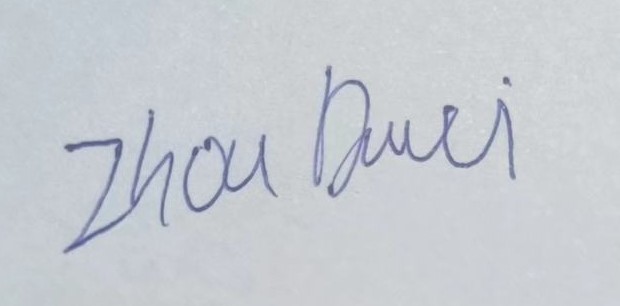 Zhou Dawei